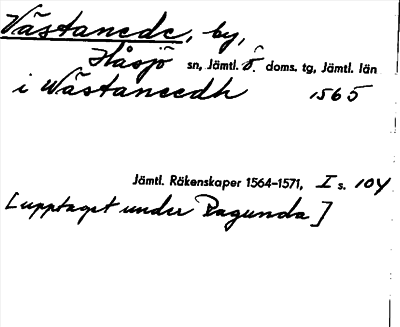 Västanede, by,
Håsjö sn, Jämtl. ö. doms. tg, Jämtl. län
i Wästaneedh 1565
Jämtl. Räkenskaper 1564–1571, I s. 104
[upptaget under Ragunda]